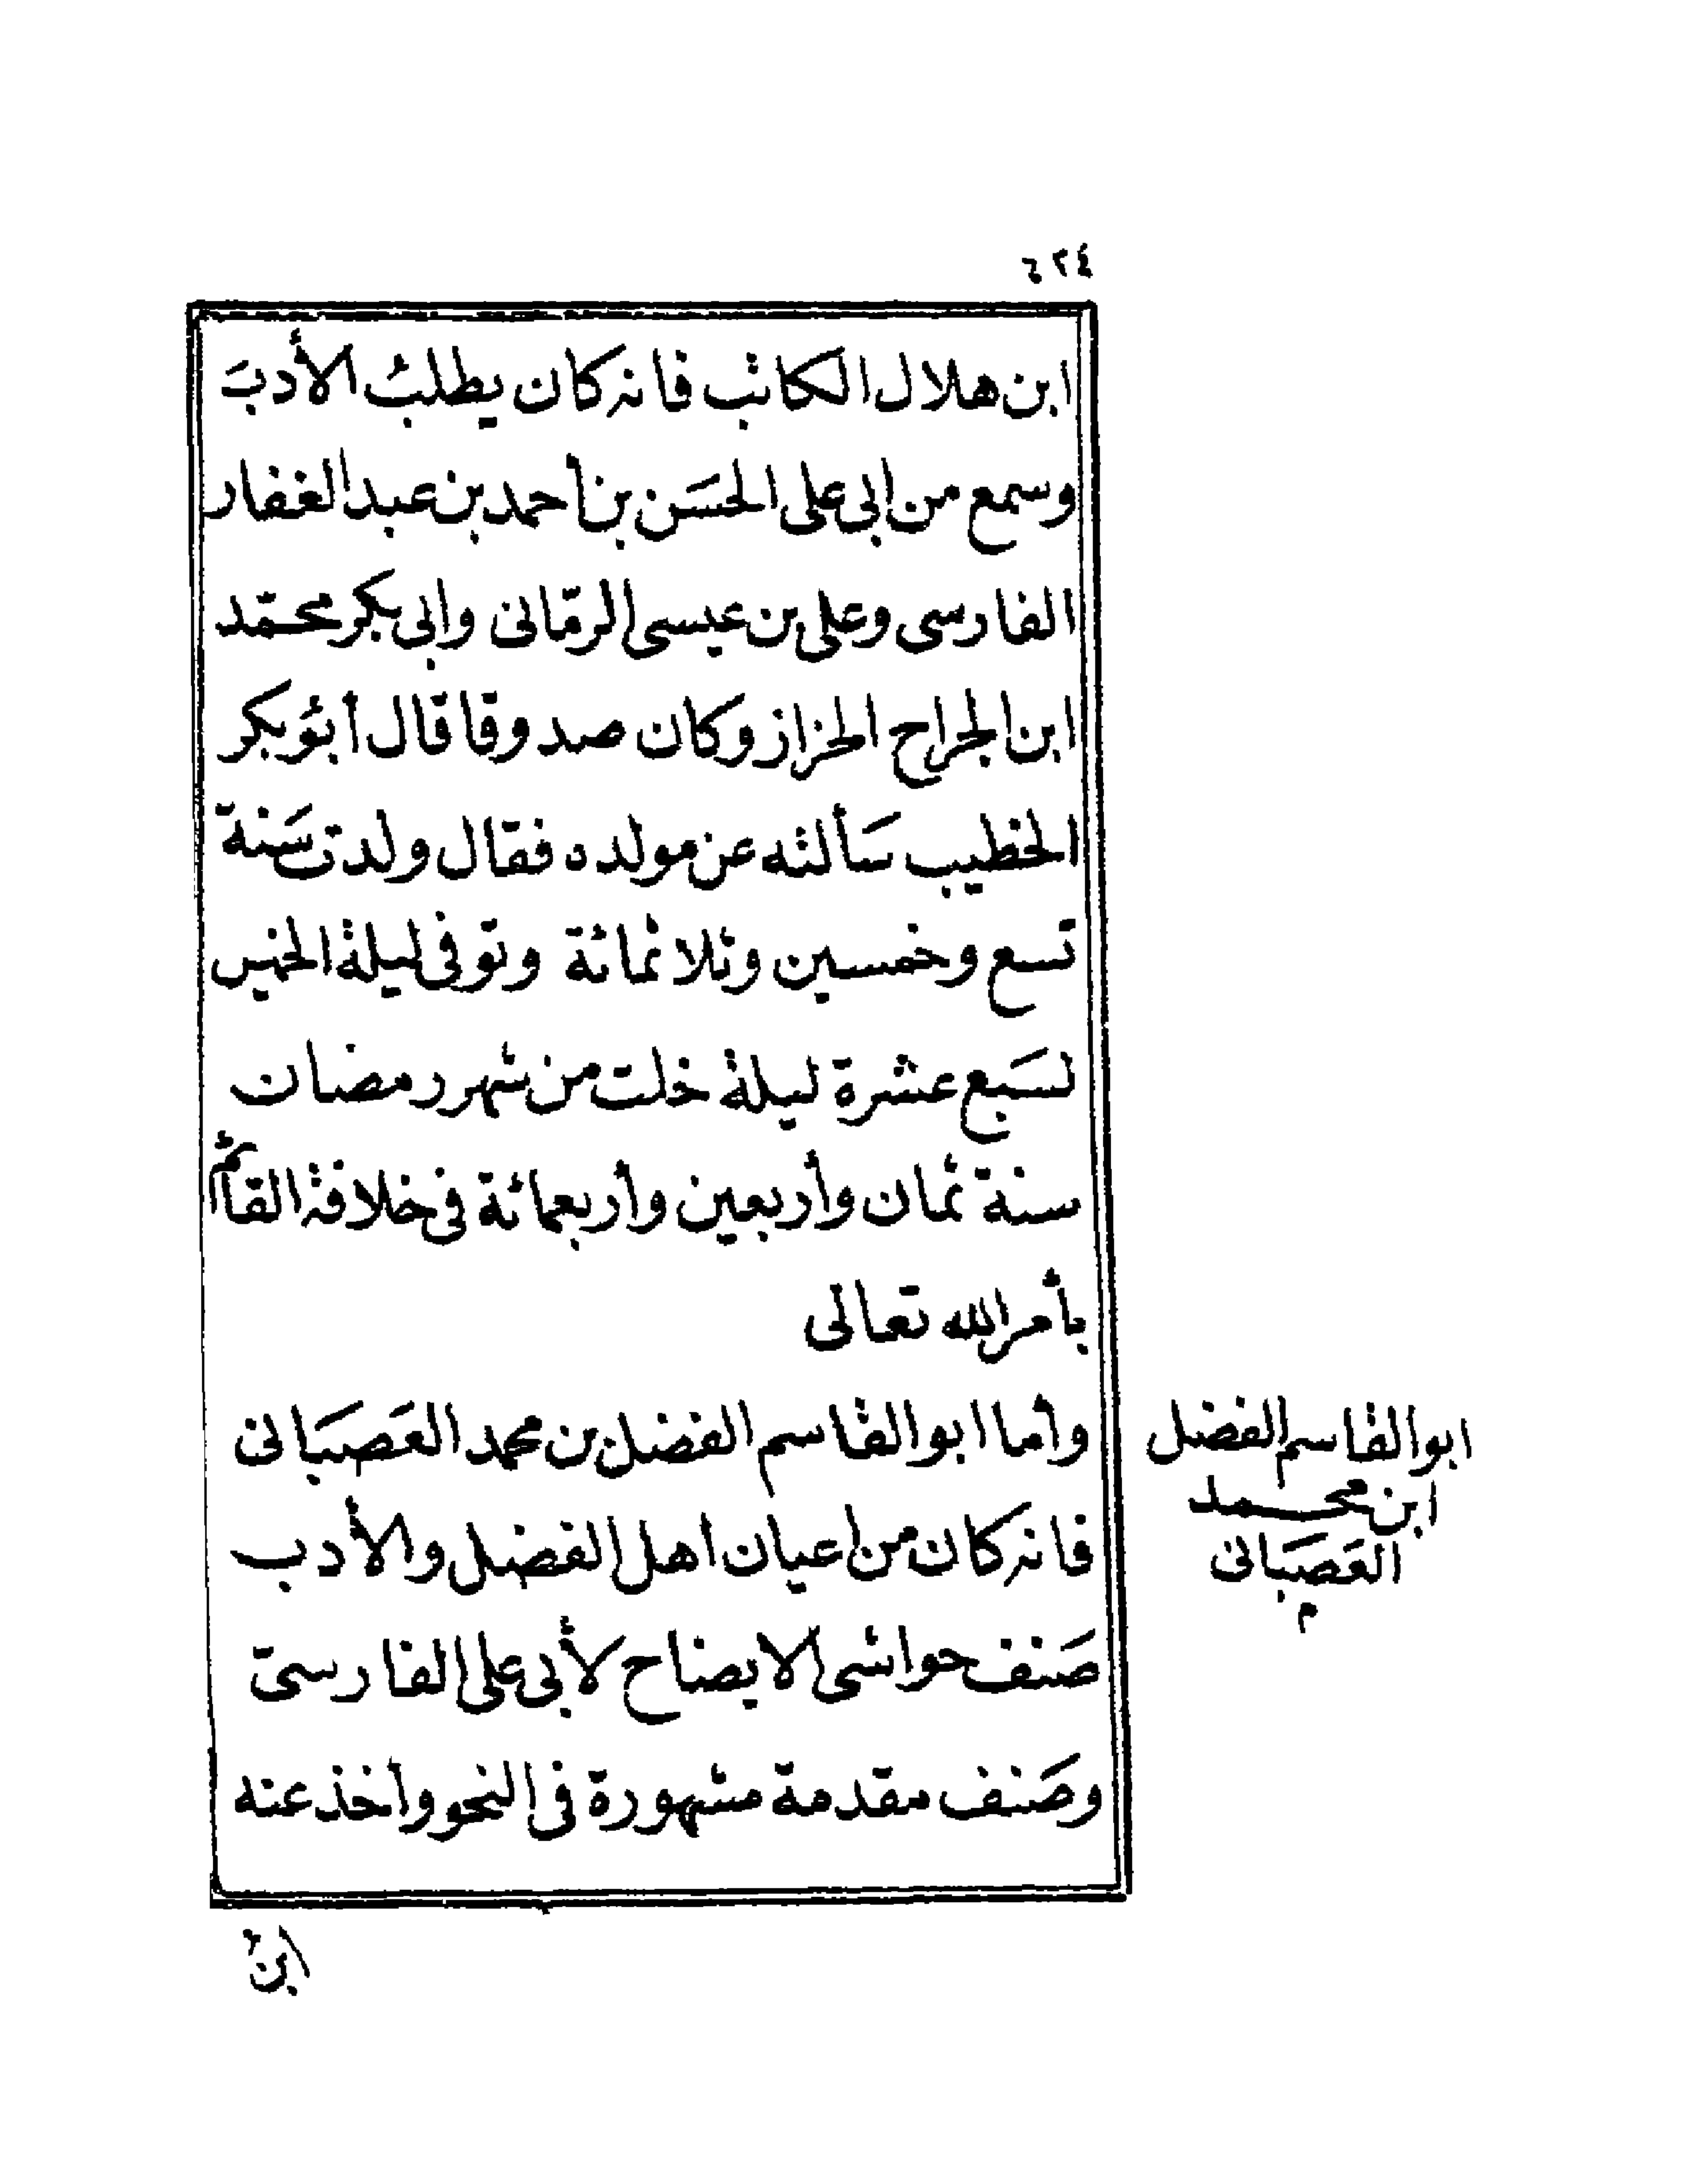 ٤٢٤
ابن هلال الكاتب فانه كان يطلبُ الأدبَ
وسمع من ابى على الحسَن بن أحمد بن عبد الغفار
الفارسى وعلى بن عيسى الرمّانى وابى بكر محمّد
ابن الجراح الخزاز وكان صدوقا قال أبوَ بكر
الخطيب سَألته عن مولده فقال ولدت سَنة
تسع وخمسين وثلاثمائة وتوفى ليلة الخميس
لسَبع عشرة ليلة خلت من شهر رمضان
سنة ثمان وأربعين وأربعمائة فى خلافة القائم
بأمر الله تعالى
وأما ابو القاسم الفضل بن محمد العَصبَانى
فانه كان من اعيان اهل الفضل والأدب
صَنف حواشى الايضاح لأبى على الفارسىّ
وصَنف مقدمة مشهورة فى النحو وأخذ عنه
ابو القاسم الفضل
ابن محمد
العَصبَانى
م
ابنُ